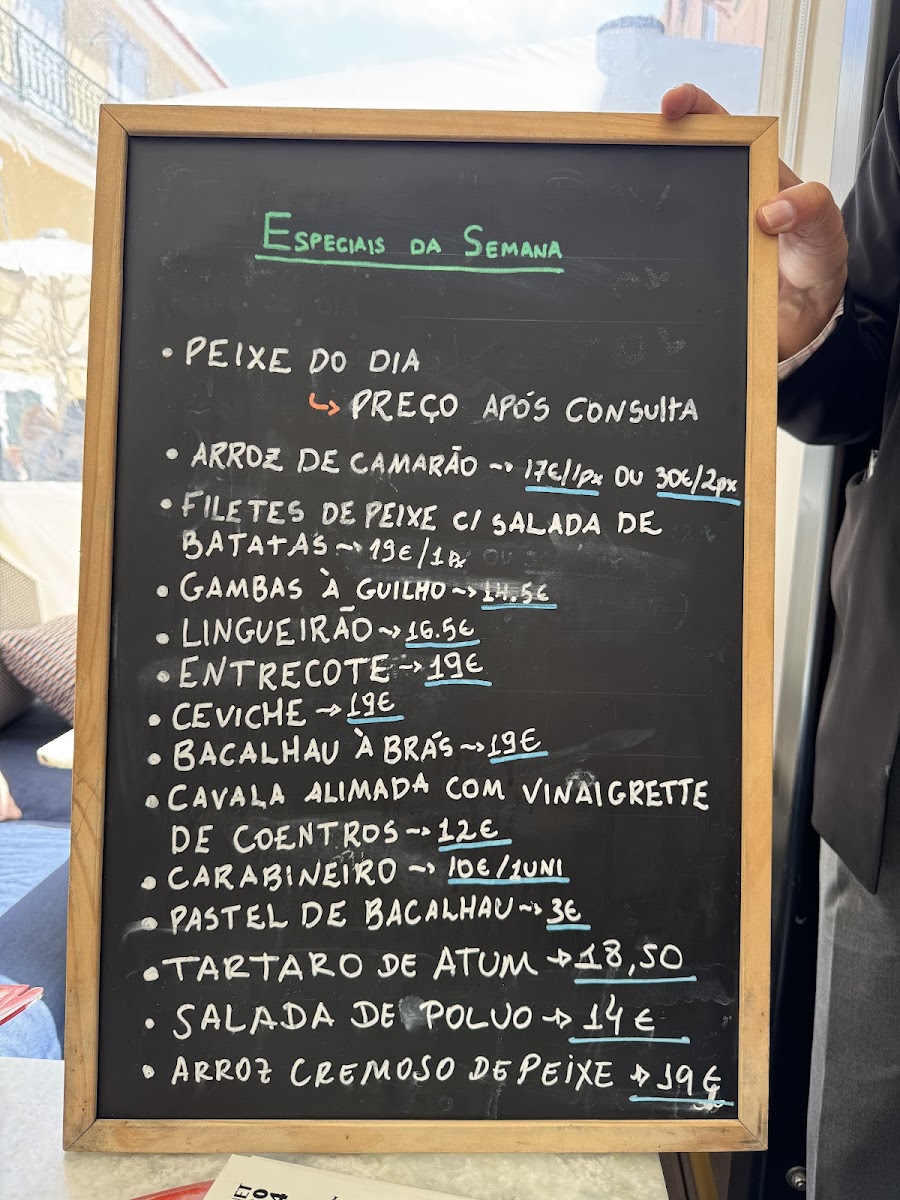 ESPECIAIS DA SEMANA
• PEIXE DO DIA
↳ PREÇO APÓS CONSULTA
• ARROZ DE CAMARÃO ~> 17€/1px OU 30€/2px
• FILETES DE PEIXE C/ SALADA DE
BATATAS ~> 19€/1px
• GAMBAS À GUILHO ~> 14.5€
• LINGUEIRÃO ~> 16.5€
• ENTRECOTE ~> 19€
• CEVICHE → 19€
• BACALHAU À BRÁS ~> 19€
• CAVALA ALIMADA COM VINAIGRETTE
DE COENTROS ~> 12€
• CARABINEIRO ~> 10€/1UNI
• PASTEL DE BACALHAU ~> 3€
• TARTARO DE ATUM → 18,50
• SALADA DE POLVO → 14€
• ARROZ CREMOSO DE PEIXE → 19€